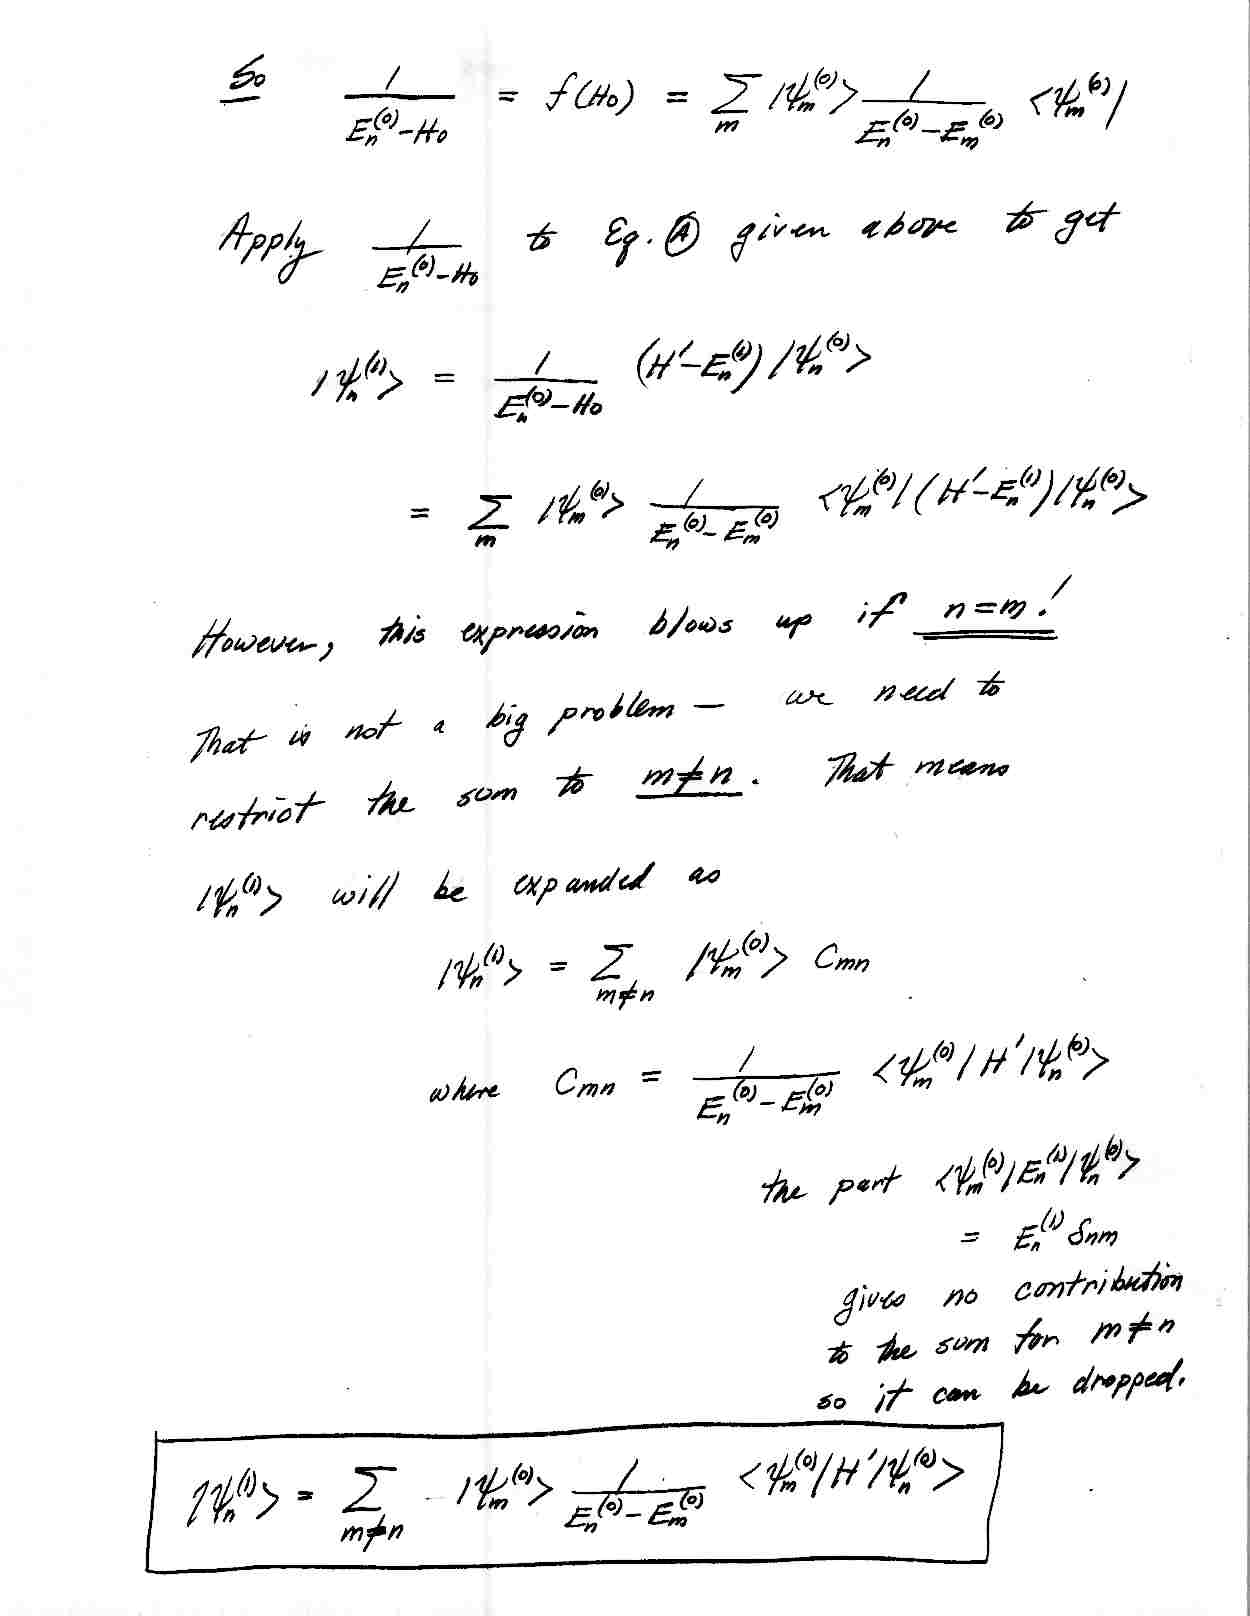 So 1/(Eₙ⁽⁰⁾−H₀) = f(H₀) = ∑ₘ |ψₘ⁽⁰⁾> 1/(Eₙ⁽⁰⁾−Eₘ⁽⁰⁾) <ψₘ⁽⁰⁾|
Apply 1/(Eₙ⁽⁰⁾−H₀) to Eq. Ⓐ given above to get
|ψₙ⁽¹⁾> = 1/(Eₙ⁽⁰⁾−H₀) (H′−Eₙ⁽¹⁾)|ψₙ⁽⁰⁾>
= ∑ₘ |ψₘ⁽⁰⁾> 1/(Eₙ⁽⁰⁾−Eₘ⁽⁰⁾) <ψₘ⁽⁰⁾|(H′−Eₙ⁽¹⁾)|ψₙ⁽⁰⁾>
However, this expression blows up if n=m!
That is not a big problem — we need to
restrict the sum to m≠n. That means
|ψₙ⁽¹⁾> will be expanded as
|ψₙ⁽¹⁾> = ∑_{m≠n} |ψₘ⁽⁰⁾> Cmn
where Cmn = 1/(Eₙ⁽⁰⁾−Eₘ⁽⁰⁾) <ψₘ⁽⁰⁾|H′|ψₙ⁽⁰⁾>
the part <ψₘ⁽⁰⁾|Eₙ⁽¹⁾|ψₙ⁽⁰⁾>
= Eₙ⁽¹⁾ δnm
gives no contribution
to the sum for m≠n
so it can be dropped.
|ψₙ⁽¹⁾> = ∑_{m≠n} |ψₘ⁽⁰⁾> 1/(Eₙ⁽⁰⁾−Eₘ⁽⁰⁾) <ψₘ⁽⁰⁾|H′|ψₙ⁽⁰⁾>